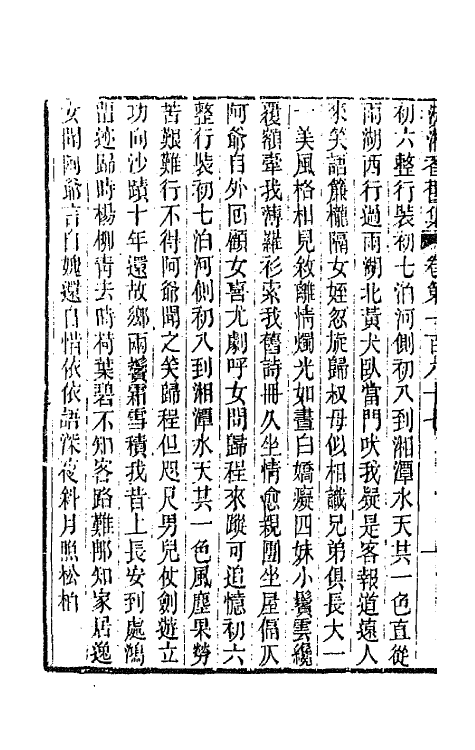 沅湘耆舊集 卷第一百六十七
初六整行裝初七泊河側初八到湘潭水天共一色直從
雨湖西行過雨湖北黃犬臥當門吠我疑是客報道遠人
來笑語簾櫳隔女姪忽旋歸叔母似相識兄弟俱長大一
一美風格相見敘離情燭光如晝白嬌癡四妹小鬟雲纔
覆額牽我薄羅衫索我舊詩冊久坐情愈親團坐屋偪仄
阿爺自外回顧女喜尤劇呼女問歸程來蹤可追憶初六
整行裝初七泊河側初八到湘潭水天共一色風塵果勞
苦艱難行不得阿爺聞之笑歸程但咫尺男兒仗劍遊立
功向沙蹟十年還故鄉兩鬢霜雪積我昔上長安到處鴻
泥迹歸時楊柳靑去時荷葉碧不知客路難那知家居逸
女聞阿爺言自媿還自惜依依語深夜斜月照松柏